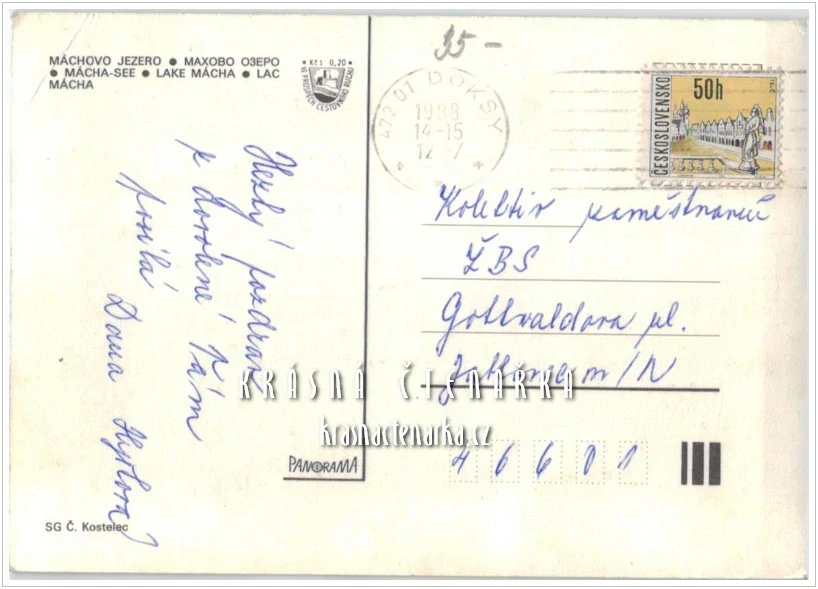 MÁCHOVO JEZERO ● MAXOBO O3EPO
● MÁCHA-SEE ● LAKE MÁCHA ● LAC
MÁCHA
Kčs 0,20
VE PROSPĚCH CESTOVNÍHO RUCHU
35 –
472 01 DOKSY
1988
14-15
12 7
ČESKOSLOVENSKO
50h
TELČ
Hezký pozdrav
z dovolené Vám
posílá Dana
Kolektiv zaměstnanců
ŽBS
Gottwaldova pl.
Jablonec n/N
46601
KRÁSNÁ ČTENÁŘKA
krasnactenarka.cz
PANORAMA
SG Č. Kostelec